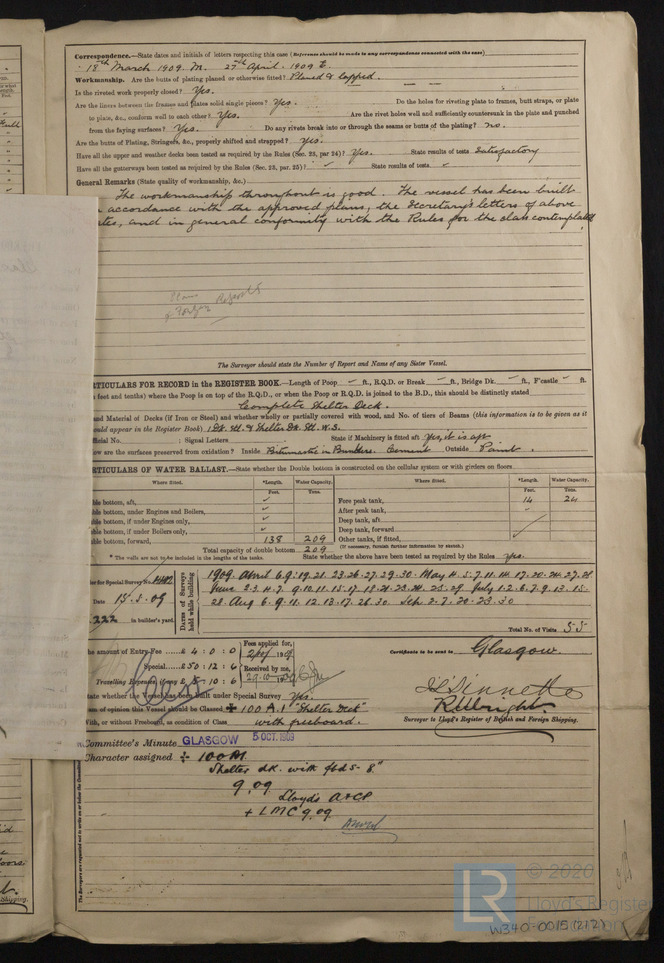 Correspondence.—State dates and initials of letters respecting this case (Reference should be made to any correspondence connected with the case)
18th March 1909. M. 27th April 1909 E.
Workmanship. Are the butts of plating planed or otherwise fitted? Planed & lapped.
Is the riveted work properly closed? Yes.
Are the liners between the frames and plates solid single pieces? Yes. Do the holes for riveting plate to frames, butt straps, or plate
to plate, &c., conform well to each other? Yes. Are the rivet holes well and sufficiently countersunk in the plate and punched
from the faying surfaces? Yes. Do any rivets break into or through the seams or butts of the plating? no.
Are the butts of Plating, Stringers, &c., properly shifted and strapped? Yes.
Have all the upper and weather decks been tested as required by the Rules (Sec. 23, par 24)? Yes. State results of tests Satisfactory
Have all the gutterways been tested as required by the Rules (Sec. 23, par. 25)? State results of tests
General Remarks (State quality of workmanship, &c.)
The workmanship throughout is good. The vessel has been built
accordance with the approved plans, the Secretary's letters of above
ates, and in general conformity with the Rules for the class contemplated
Reports
The Surveyor should state the Number of Report and Name of any Sister Vessel.
RTICULARS FOR RECORD in the REGISTER BOOK.—Length of Poop – ft., R.Q.D. or Break – ft., Bridge Dk. – ft., F'castle – ft.
feet and tenths) where the Poop is on top of the R.Q.D., or when the Poop or R.Q.D. is joined to the B.D., this should be distinctly stated
Complete Shelter Deck.
and Material of Decks (if Iron or Steel) and whether wholly or partially covered with wood, and No. of tiers of Beams (this information is to be given as it
ould appear in the Register Book) 1 Dk. Stl & Shelter Dk. Stl. W.S.
fficial No. ; Signal Letters State if Machinery is fitted aft Yes, it is aft
ow are the surfaces preserved from oxidation? Inside Bitumastic in Bunkers. Cement Outside Paint.
RTICULARS OF WATER BALLAST.—State whether the Double bottom is constructed on the cellular system or with girders on floors
Where fitted. *Length. Water Capacity. Where fitted. *Length. Water Capacity.
Feet. Tons. Feet. Tons.
ble bottom, aft, Fore peak tank, 14 24
ble bottom, under Engines and Boilers, After peak tank,
ble bottom, if under Engines only, Deep tank, aft
ble bottom, if under Boilers only, Deep tank, forward
ble bottom, forward, 138 209 Other tanks, if fitted,
(If necessary, furnish further information by sketch.)
Total capacity of double bottom 209 State whether the above have been tested as required by the Rules Yes.
* The wells are not to be included in the lengths of the tanks.
er for Special Survey No.
Date 15.5.09
222 in builder's yard.
Dates of Surveys held while building
1909. April 6.9.19.21.23.26.27.29.30. May 4.5.7.11.14.17.20.24.27.28
June 2.3.4.7.9.10.11.15.17.18.21.23.24.25.29. July 1.2.6.7.9.13.15.
28. Aug 6.9.11.12.13.17.26.30. Sep. 2.7.20.23.30
Total No. of Visits 55
he amount of Entry Fee £ 4 : 0 : 0 Fees applied for, Certificates to be sent to Glasgow.
Special £50 : 12 : 6 Received by me,
Travelling Expenses, if any £ : 10 : 6
tate whether the Vessel has been built under Special Survey Yes.
on of opinion this Vessel should be Classed + 100 A.1 "Shelter Deck"
With, or without Freeboard, as condition of Class with freeboard.
Surveyor to Lloyd's Register of British and Foreign Shipping.
Committee's Minute GLASGOW 5 OCT. 1909
Character assigned + 100A1
Shelter dk. with fbds- 8"
9.09
Lloyd's A&CP
+ LMC 9.09
The Surveyors are requested not to write on or below the Committee's Minute
LR
© 2020
Lloyd's Register
Foundation
W340-0015 (2/2)